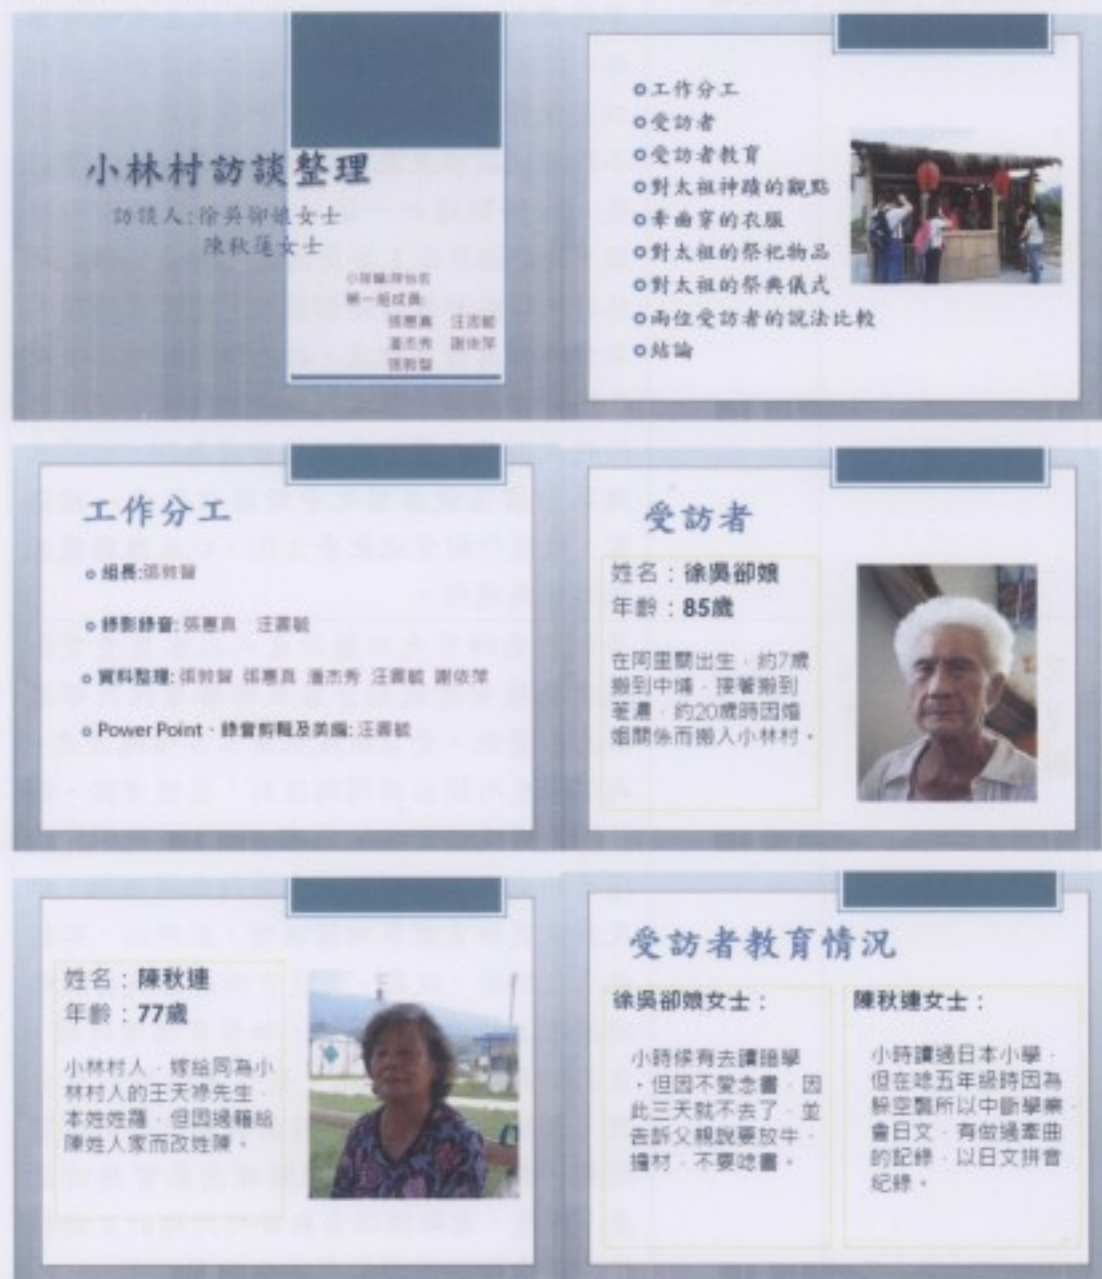 小林村訪談整理
訪談人:徐吳卻娘女士
陳秋蓮女士
第一組成員:
張惠真 汪書毓
潘杰秀 謝依萍
張敦智
工作分工
受訪者
受訪者教育
對太祖神蹟的觀點
牽曲穿的衣服
對太祖的祭祀物品
對太祖的祭典儀式
兩位受訪者的說法比較
結論
工作分工
組長:張敦智
錄影錄音: 張惠真 汪書毓
資料整理: 張敦智 張惠真 潘杰秀 汪書毓 謝依萍
Power Point、錄音剪輯及美編: 汪書毓
受訪者
姓名：徐吳卻娘
年齡：85歲
在阿里關出生，約7歲
搬到中埔，接著搬到
荖濃，約20歲時因婚
姻關係而搬入小林村。
姓名：陳秋連
年齡：77歲
小林村人，嫁給同為小
林村人的王天祿先生，
本姓姓羅，但因過籍給
陳姓人家而改姓陳。
受訪者教育情況
徐吳卻娘女士：
小時候有去讀暗學
，但因不愛念書，因
此三天就不去了，並
告訴父親說要放牛、
撿材，不要唸書。
陳秋連女士：
小時讀過日本小學，
但在唸五年級時因為
躲空襲所以中斷學業，
會日文，有做過牽曲
的記錄，以日文拼音
紀錄。